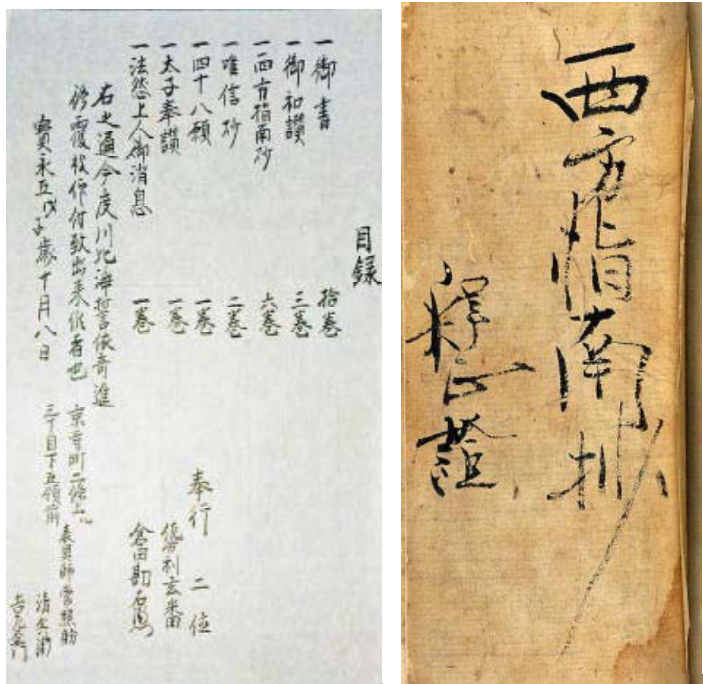 目録
一御書 拾巻
一御和讃 三巻
一西方指南抄 六巻
一唯信抄 二巻
一四十八願 一巻
一太子奉讃 一巻
一法然上人御消息 一巻
右之通今度川北海誓依寄進
修覆被仰付致出来候者也
寶永五戊子歳十月八日
奉行 二位
倉田勘右衛門
京寺町二條上ル
三丁目下五領前
表具師
吉左衛門
西方指南抄
釋正證